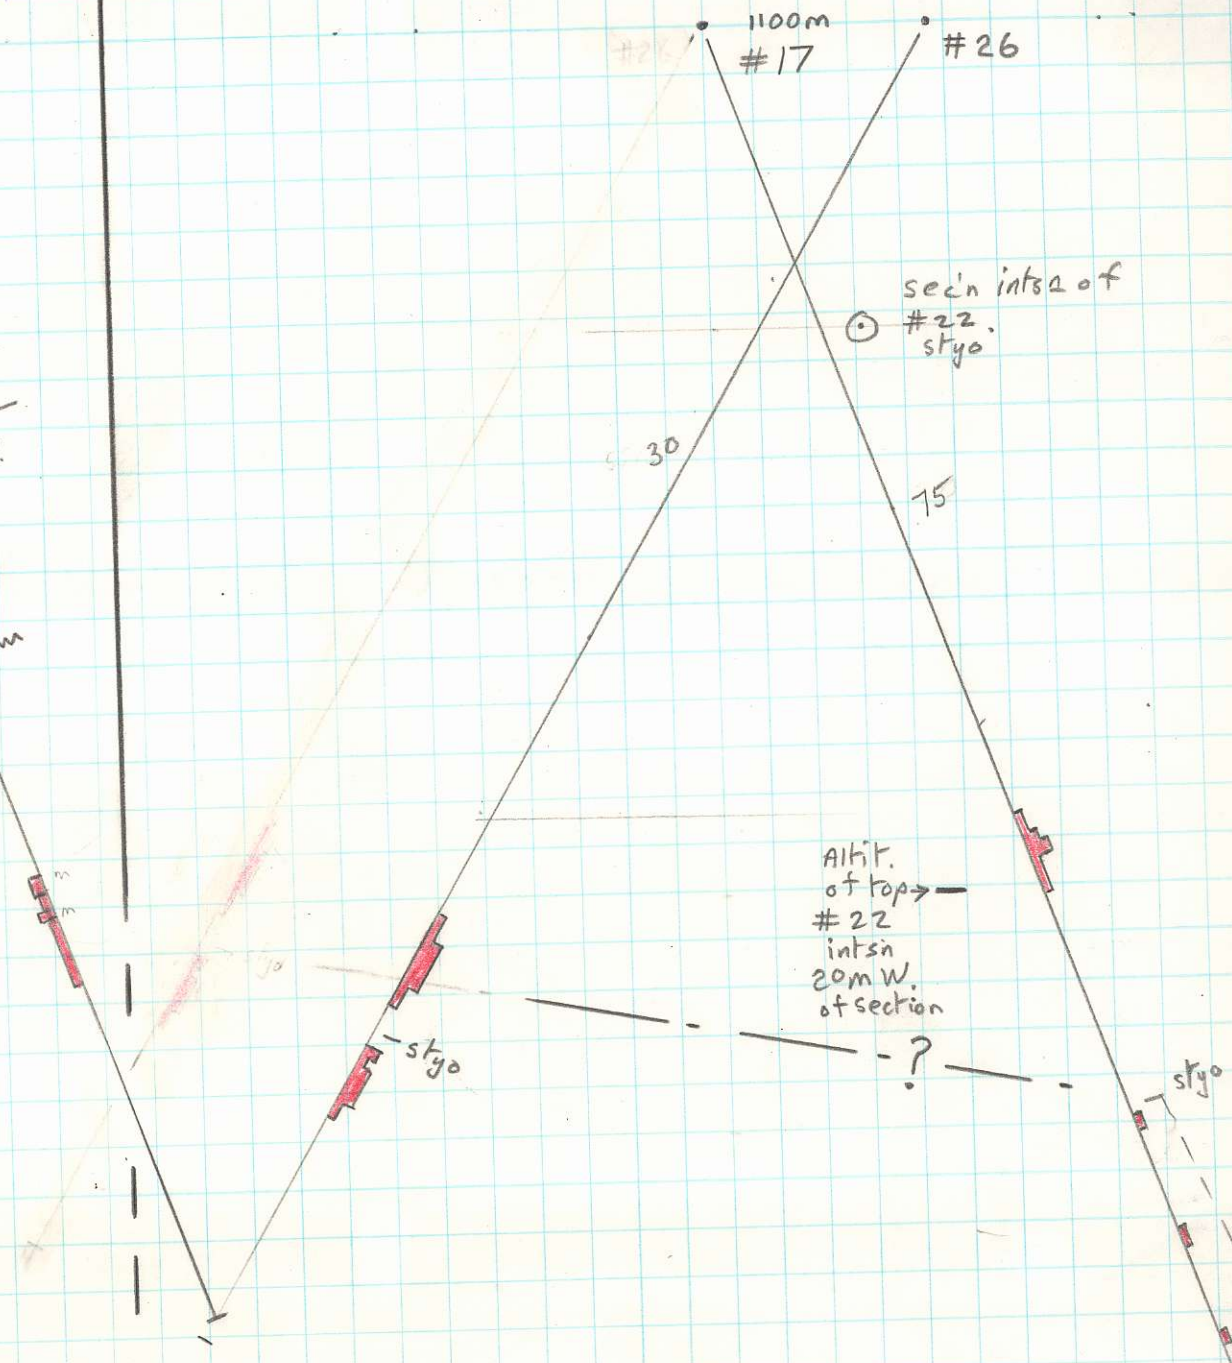 1100m
#17
#26
sec'n intsn of
#22.
styo
30
75
m
3
3
Altit.
of top→
#22
intsn
20m W.
of section
styo
?
styo